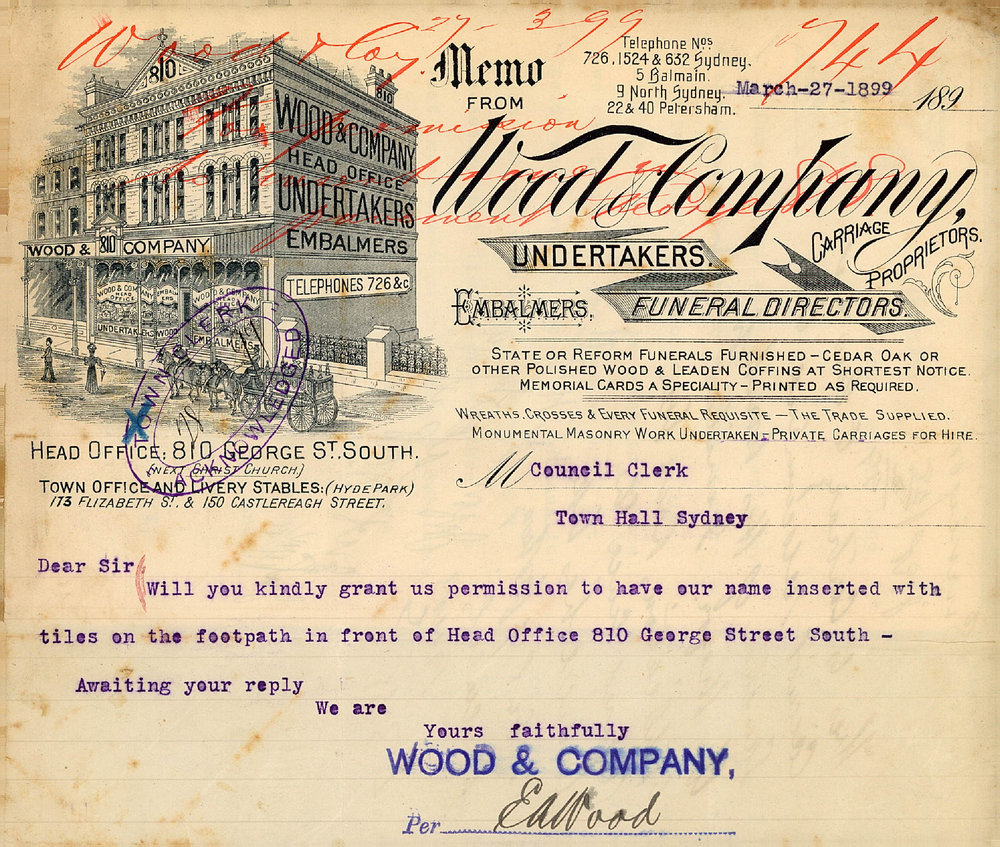 Wood & Coy. 27-3-99
744
Memo
FROM
Telephone Nos
726, 1524 & 632 Sydney.
5 Balmain.
9 North Sydney.
22 & 40 Petersham.
March-27-1899 189
Wood & Company,
UNDERTAKERS.
CARRIAGE PROPRIETORS.
EMBALMERS.
FUNERAL DIRECTORS.
STATE OR REFORM FUNERALS FURNISHED – CEDAR OAK OR
OTHER POLISHED WOOD & LEADEN COFFINS AT SHORTEST NOTICE.
MEMORIAL CARDS A SPECIALITY – PRINTED AS REQUIRED.
WREATHS, CROSSES & EVERY FUNERAL REQUISITE – THE TRADE SUPPLIED.
MONUMENTAL MASONRY WORK UNDERTAKEN – PRIVATE CARRIAGES FOR HIRE.
810
810
WOOD & COMPANY
HEAD OFFICE
UNDERTAKERS
EMBALMERS
WOOD & 810 COMPANY.
TELEPHONES 726 &c
WOOD & COMPANY
HEAD OFFICE
EMBALMERS
WOOD & COMPANY
UNDERTAKERS
WOOD
EMBALMERS
TOWN CLERK
ACKNOWLEDGED
HEAD OFFICE: 810 GEORGE ST. SOUTH.
(NEXT CHRIST CHURCH.)
TOWN OFFICE AND LIVERY STABLES: (HYDE PARK)
173 ELIZABETH ST. & 150 CASTLEREAGH STREET.
M Council Clerk
Town Hall Sydney
Dear Sir
Will you kindly grant us permission to have our name inserted with
tiles on the footpath in front of Head Office 810 George Street South -
Awaiting your reply
We are
Yours faithfully
WOOD & COMPANY,
Per EAWood